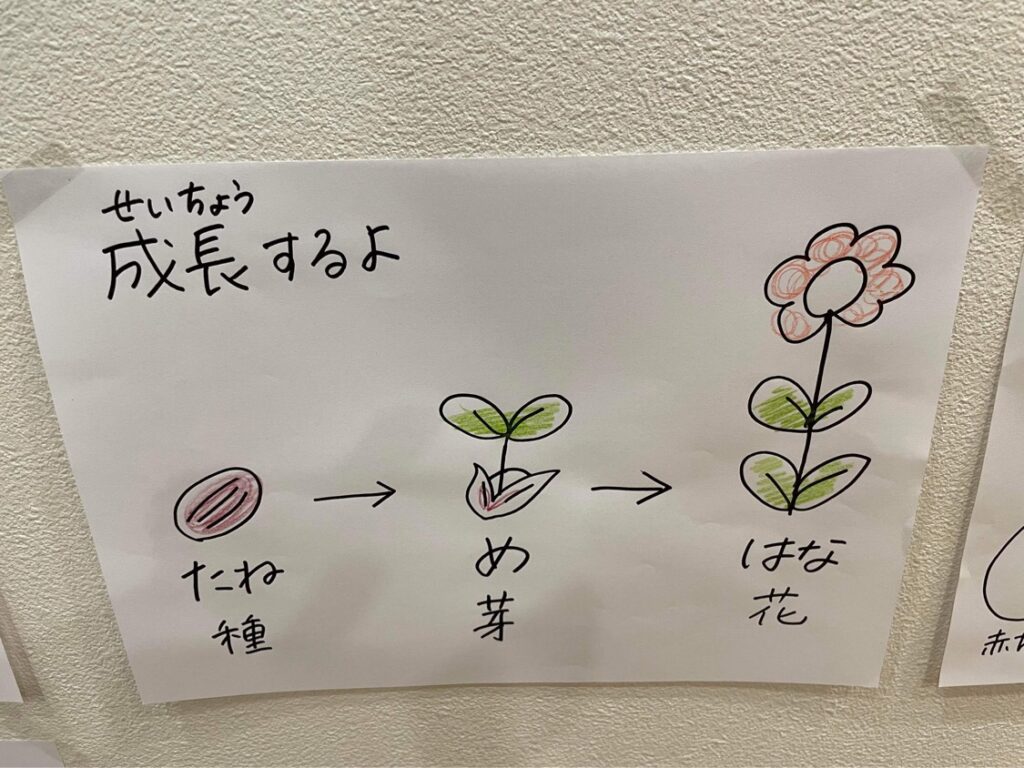 せいちょう
成長するよ
たね
種
め
芽
はな
花
赤